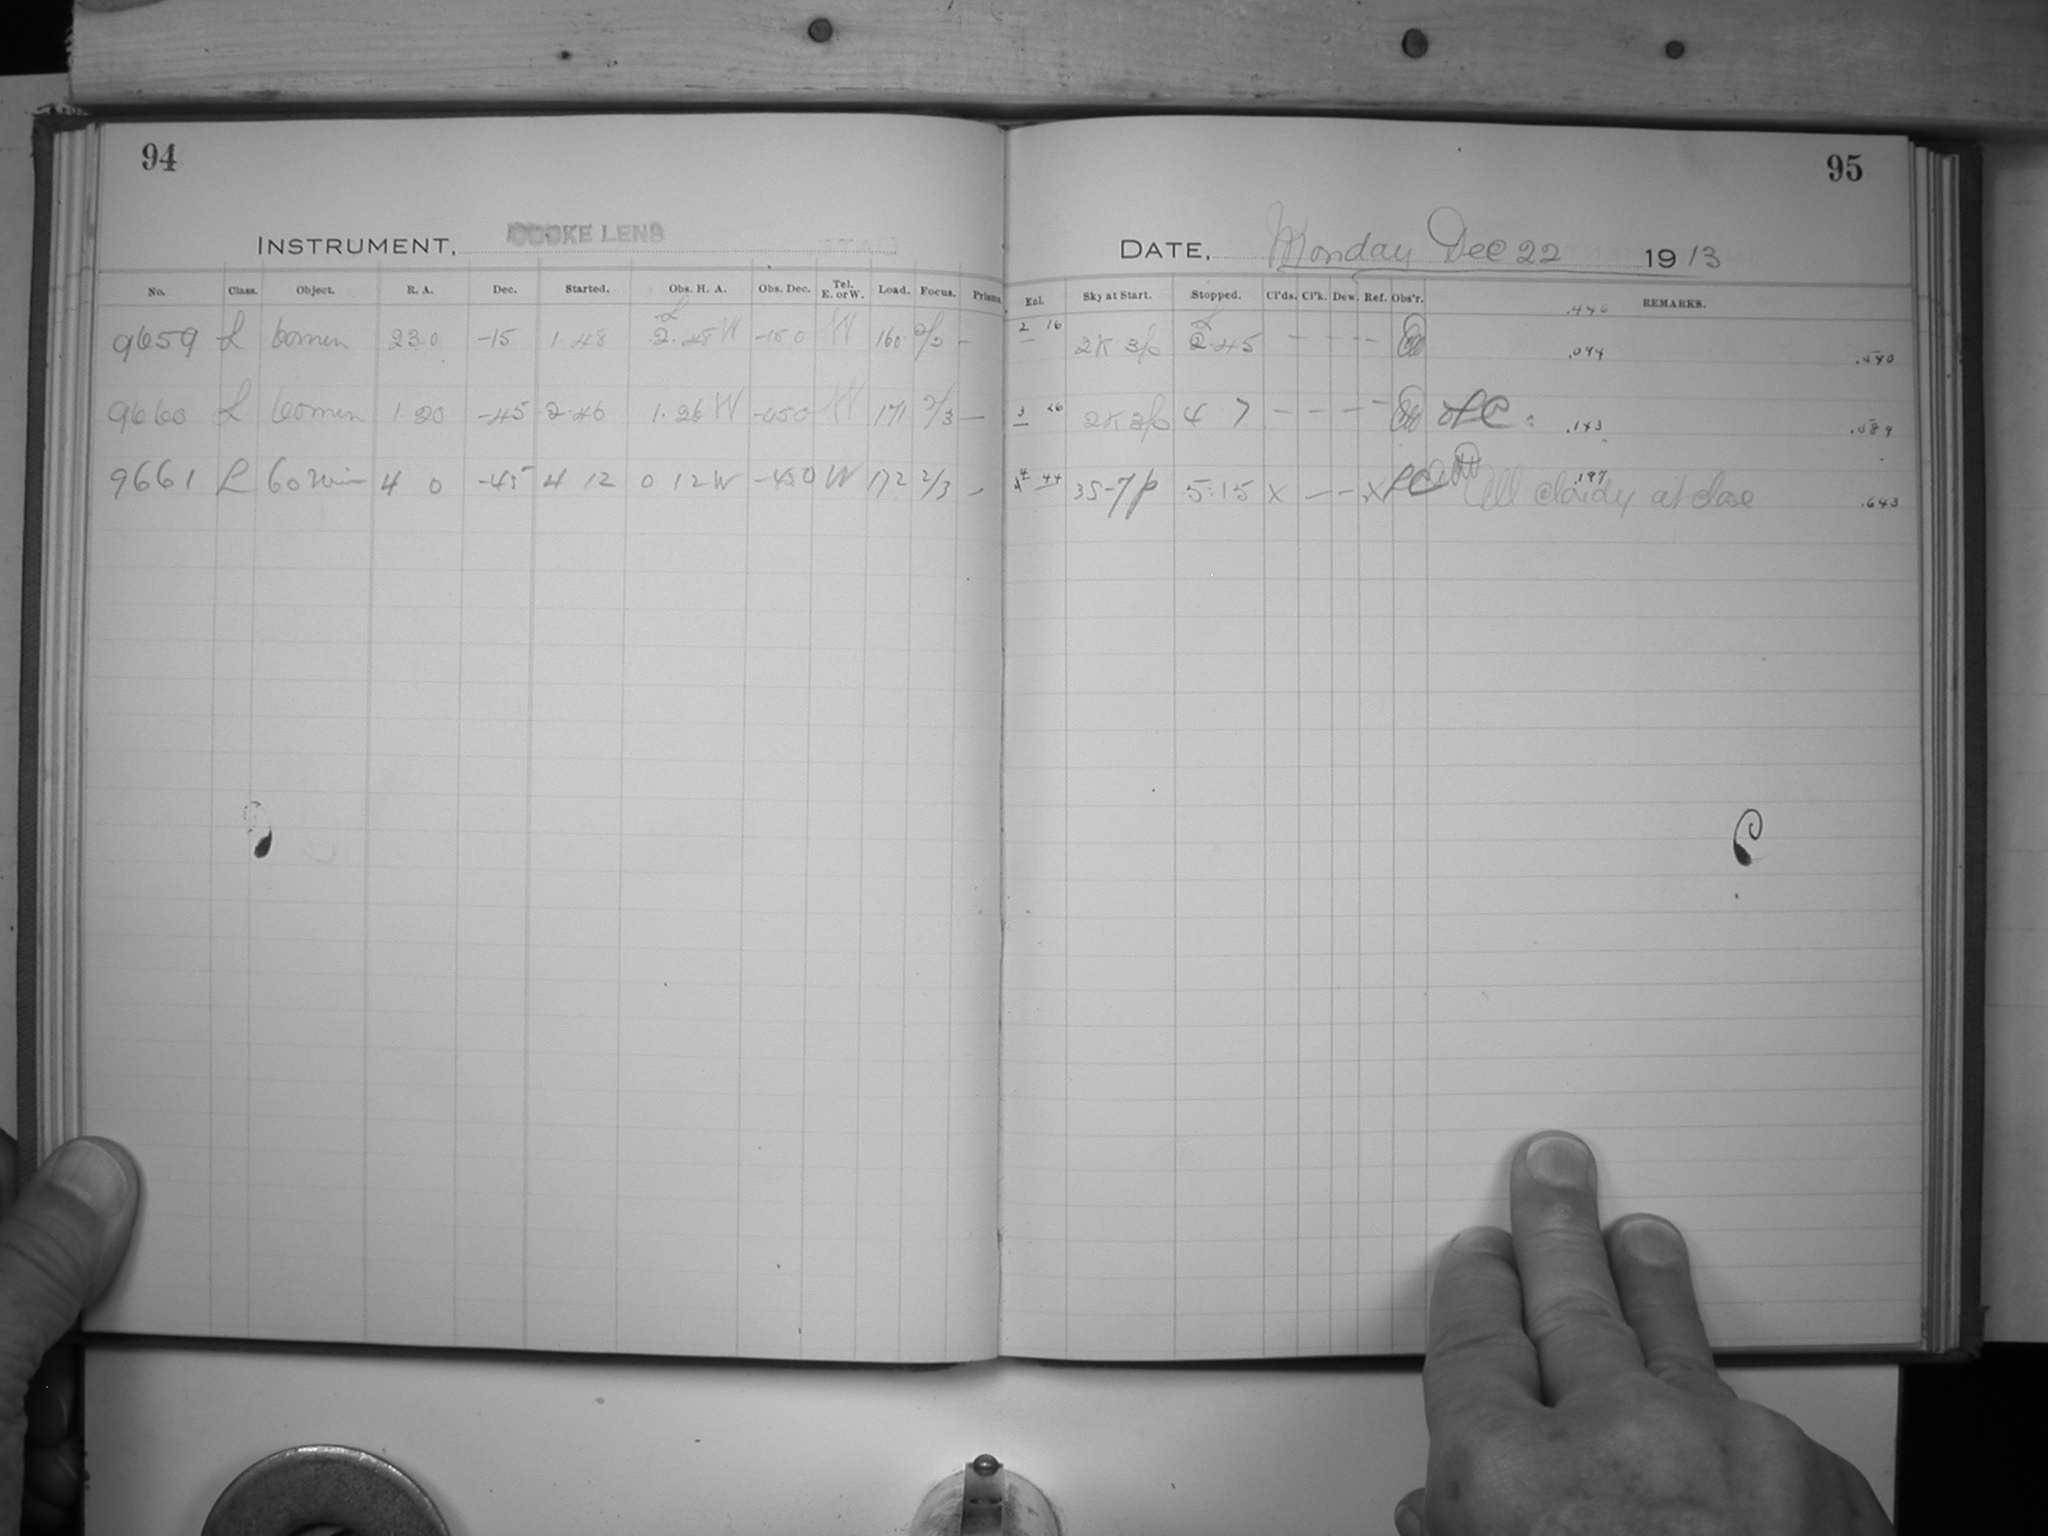 94
INSTRUMENT, COOKE LENS
No. Class. Object. R. A. Dec. Started. Obs. H. A. Obs. Dec. Tel. E. or W. Load. Focus. Prisms.
9659 L 60min 23 0 -15 1 48 2. 48 W -15 0 W 160 —
9660 L 60min 1. 20 -45 2.46 1. 26 W -45 0 W 171 2/3 —
9661 L 60min 4 0 -45 4 12 0 12 W -45 0 W 172 2/3 —
95
DATE, Monday Dec 22 1913
Exl. Sky at Start. Stopped. Cl'ds. Cl'k. Dew. Ref. Obs'r. REMARKS.
.446
2 16 2.45 — — — .094 .540
3 26 4 7 — — — — LC .143 .589
44 5:15 X — — X LC .197 All cloudy at close .643